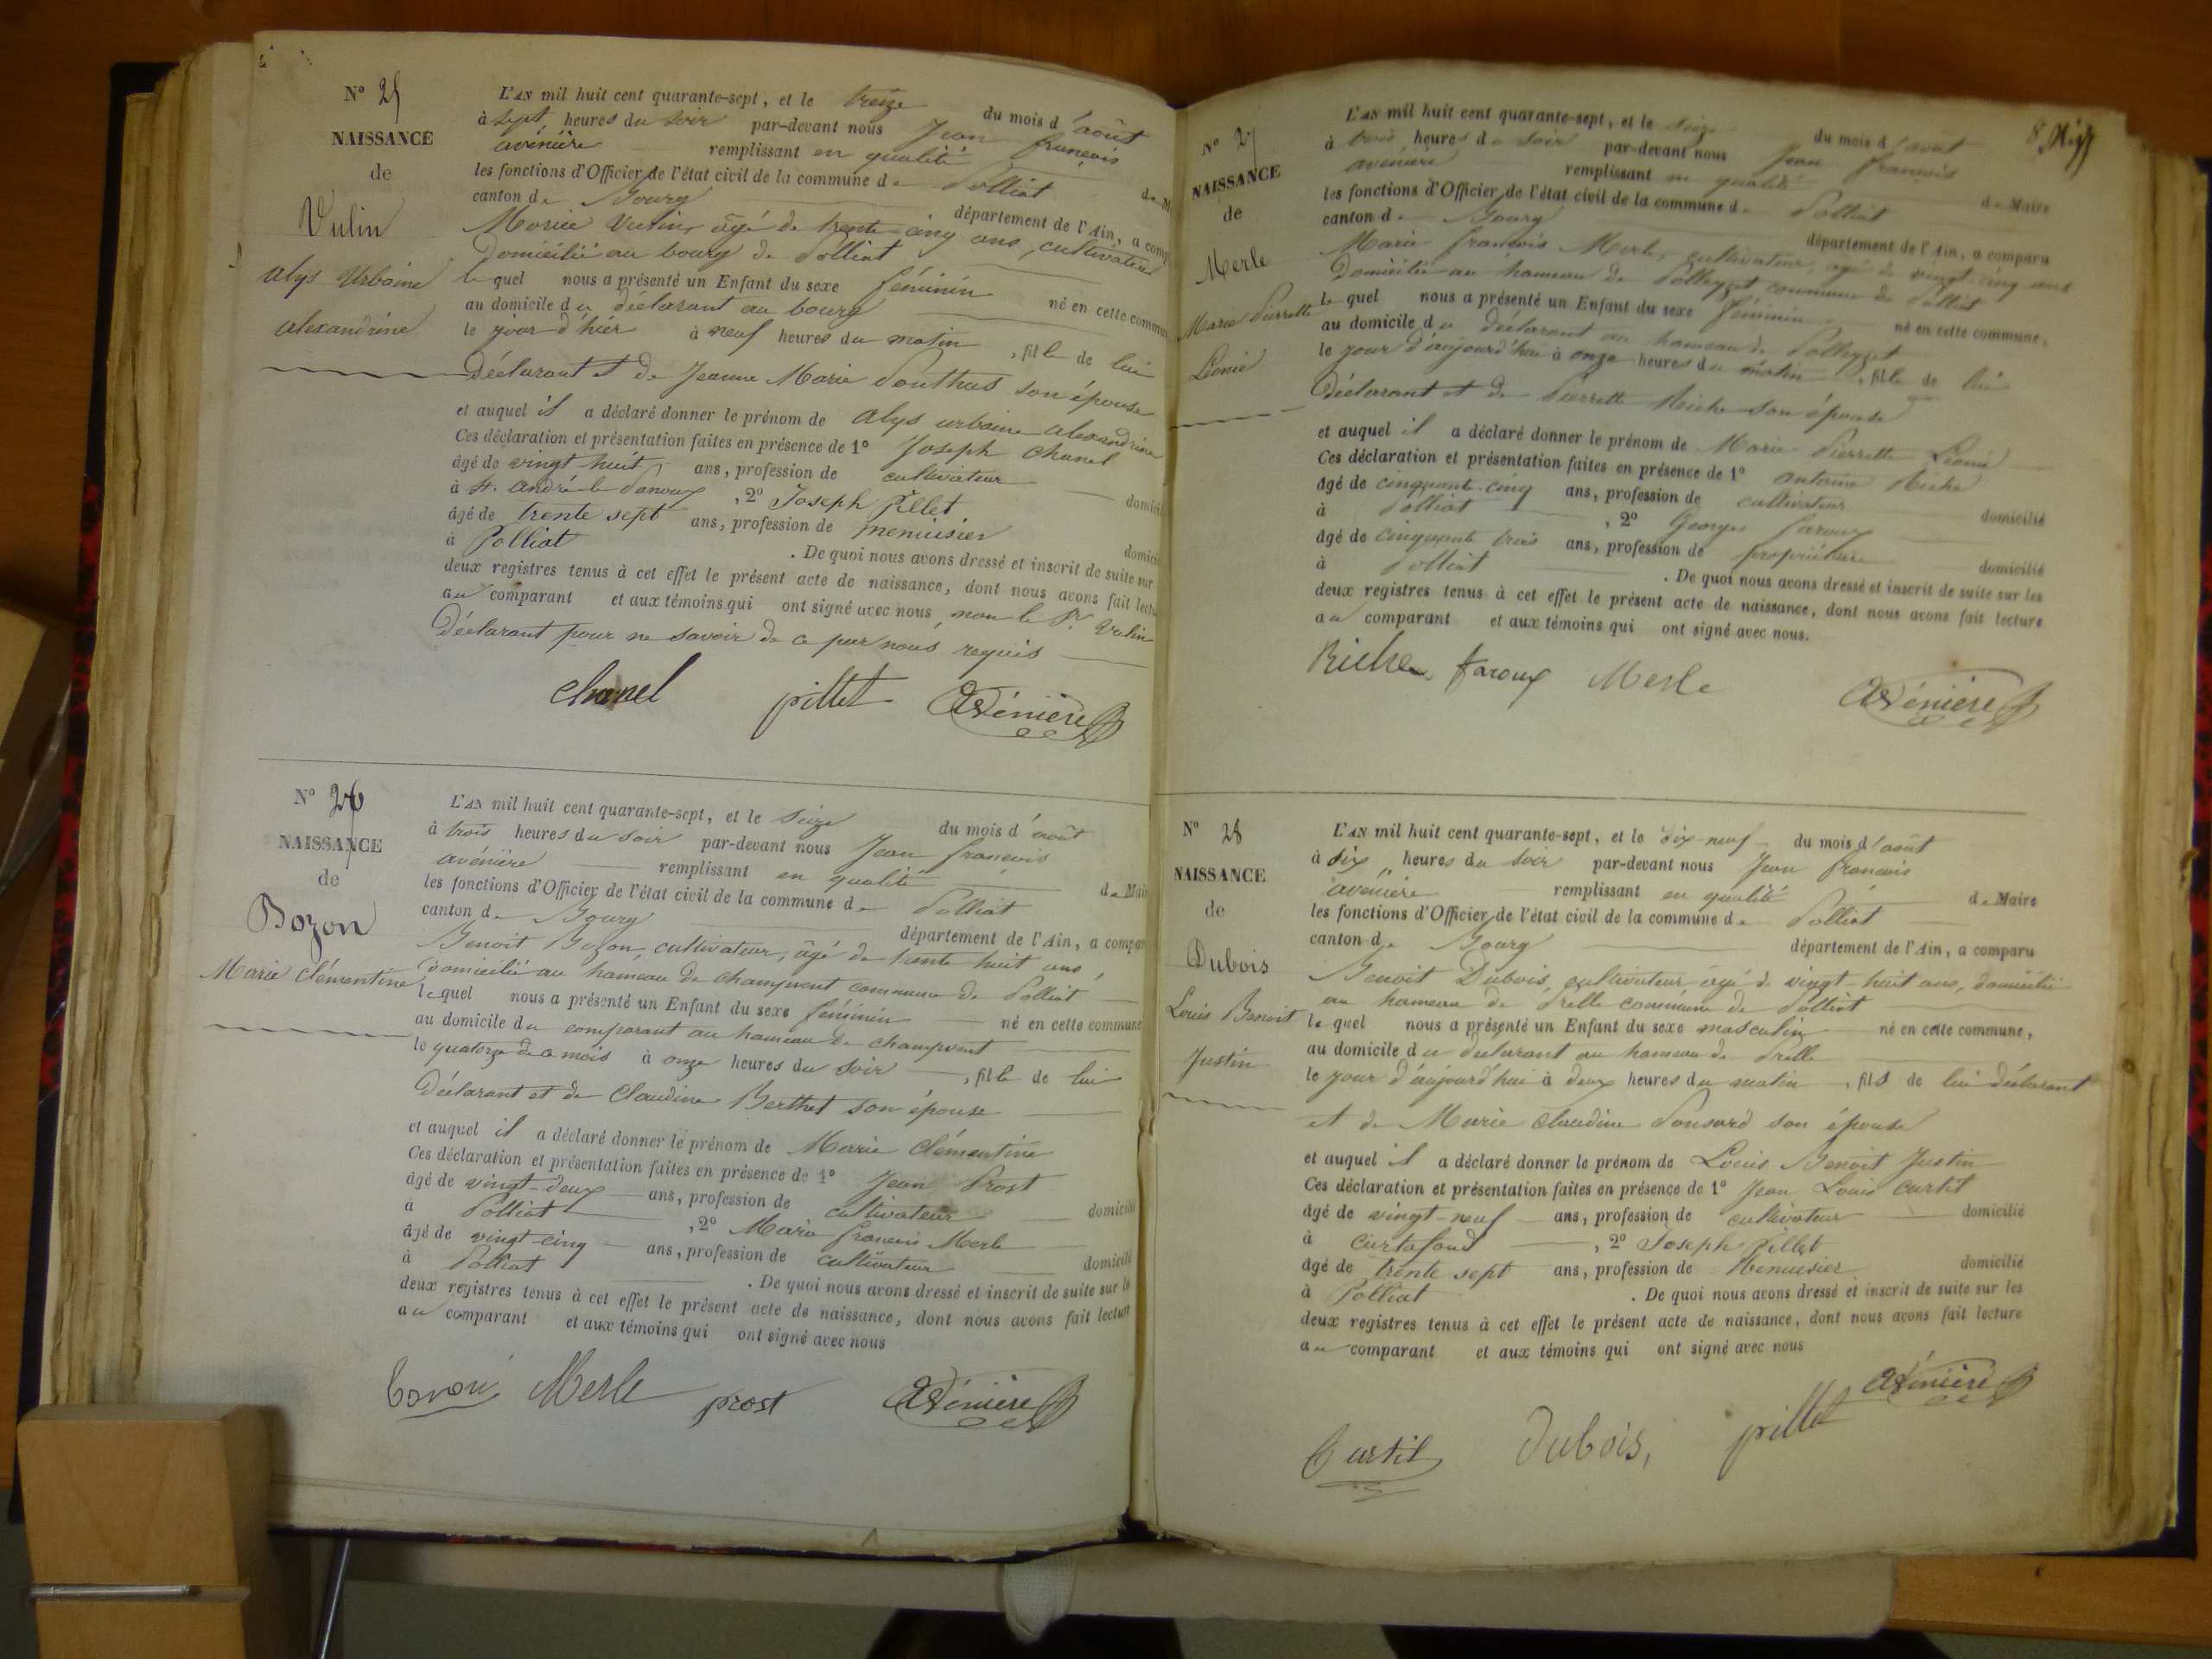 N° 25
NAISSANCE
de
Vulin
alys Urbaine
alexandrine
L'AN mil huit cent quarante-sept, et le treize du mois d'août
à sept heures du soir par-devant nous Jean françois
avénière remplissant en qualité de M
les fonctions d'Officier de l'état civil de la commune de Polliat
canton de Bourg département de l'Ain, a comp
Marie Vulin, âgé de trente-cinq ans, cultivateur
Domicilié au bourg de Polliat
lequel nous a présenté un Enfant du sexe féminin né en cette commu
au domicile du déclarant au bourg
le jour d'hier à neuf heures du matin, fille de lui
Déclarant et de Jeanne Marie Pouthus son épouse
et auquel il a déclaré donner le prénom de alys urbaine alexandrine
Ces déclaration et présentation faites en présence de 1° Joseph Chanel
âgé de vingt huit ans, profession de cultivateur domicil
à St. andré le panoux, 2° Joseph Pillet
âgé de trente sept ans, profession de menuisier domici
à Polliat. De quoi nous avons dressé et inscrit de suite sur
deux registres tenus à cet effet le présent acte de naissance, dont nous avons fait lectu
au comparant et aux témoins qui ont signé avec nous, non le Sr. Vulin
Déclarant pour ne savoir de ce par nous requis
chanel pillet Avénière
N° 26
NAISSANCE
de
Bozon
Marie Clémentine
L'AN mil huit cent quarante-sept, et le seize du mois d'août
à trois heures du soir par-devant nous Jean françois
avénière remplissant en qualité de Mair
les fonctions d'Officier de l'état civil de la commune de Polliat
canton de Bourg département de l'Ain, a compar
Benoit Bozon, cultivateur, âgé de trente huit ans,
Domicilié au hameau de champvent commune de Polliat
lequel nous a présenté un Enfant du sexe féminin né en cette commune
au domicile du comparant au hameau de champvent
le quatorze de ce mois à onze heures du soir, fille de lui
Déclarant et de Claudine Berthet son épouse
et auquel il a déclaré donner le prénom de Marie Clémentine
Ces déclaration et présentation faites en présence de 1° Jean Prost
âgé de vingt-deux ans, profession de cultivateur domicilié
à Polliat, 2° Marie françois Merle
âgé de vingt-cinq ans, profession de cultivateur domicilié
à Polliat. De quoi nous avons dressé et inscrit de suite sur le
deux registres tenus à cet effet le présent acte de naissance, dont nous avons fait lecture
au comparant et aux témoins qui ont signé avec nous
Merle prost Avénière
8
N° 27
NAISSANCE
de
Merle
Marie Pierrette
Léonie
L'AN mil huit cent quarante-sept, et le seize du mois d'août
à trois heures du soir par-devant nous Jean françois
avénière remplissant en qualité de Maire
les fonctions d'Officier de l'état civil de la commune de Polliat
canton de Bourg département de l'Ain, a comparu
Marie françois Merle, cultivateur, âgé de vingt-cinq ans
Domicilié au hameau de Polleyzet commune de Polliat
lequel nous a présenté un Enfant du sexe féminin né en cette commune,
au domicile du déclarant au hameau de Polleyzet
le jour d'aujourd'hui à onze heures du matin, fille de lui
Déclarant et de Pierrette Riche son épouse
et auquel il a déclaré donner le prénom de Marie Pierrette Léonie
Ces déclaration et présentation faites en présence de 1° antoine Riche
âgé de cinquante-cinq ans, profession de cultivateur domicilié
à Polliat, 2° Georges faroux
âgé de cinquante trois ans, profession de propriétaire domicilié
à Polliat. De quoi nous avons dressé et inscrit de suite sur les
deux registres tenus à cet effet le présent acte de naissance, dont nous avons fait lecture
au comparant et aux témoins qui ont signé avec nous.
Riche faroux Merle Avénière
N° 28
NAISSANCE
de
Dubois
Louis Benoit
Justin
L'AN mil huit cent quarante-sept, et le dix-neuf du mois d'août
à six heures du soir par-devant nous Jean françois
avénière remplissant en qualité de Maire
les fonctions d'Officier de l'état civil de la commune de Polliat
canton de Bourg département de l'Ain, a comparu
Benoit Dubois, cultivateur âgé de vingt-huit ans, domicilié
au hameau de Prelle commune de Polliat
lequel nous a présenté un Enfant du sexe masculin né en cette commune,
au domicile du déclarant au hameau de Prelle
le jour d'aujourd'hui à deux heures du matin, fils de lui déclarant
et de Marie Claudine Ponsard son épouse
et auquel il a déclaré donner le prénom de Louis Benoit Justin
Ces déclaration et présentation faites en présence de 1° Jean Louis Curtil
âgé de vingt-neuf ans, profession de cultivateur domicilié
à Curtafond, 2° Joseph Pillet
âgé de trente sept ans, profession de Menuisier domicilié
à Polliat. De quoi nous avons dressé et inscrit de suite sur les
deux registres tenus à cet effet le présent acte de naissance, dont nous avons fait lecture
au comparant et aux témoins qui ont signé avec nous
Avénière
Curtil Dubois, pillet